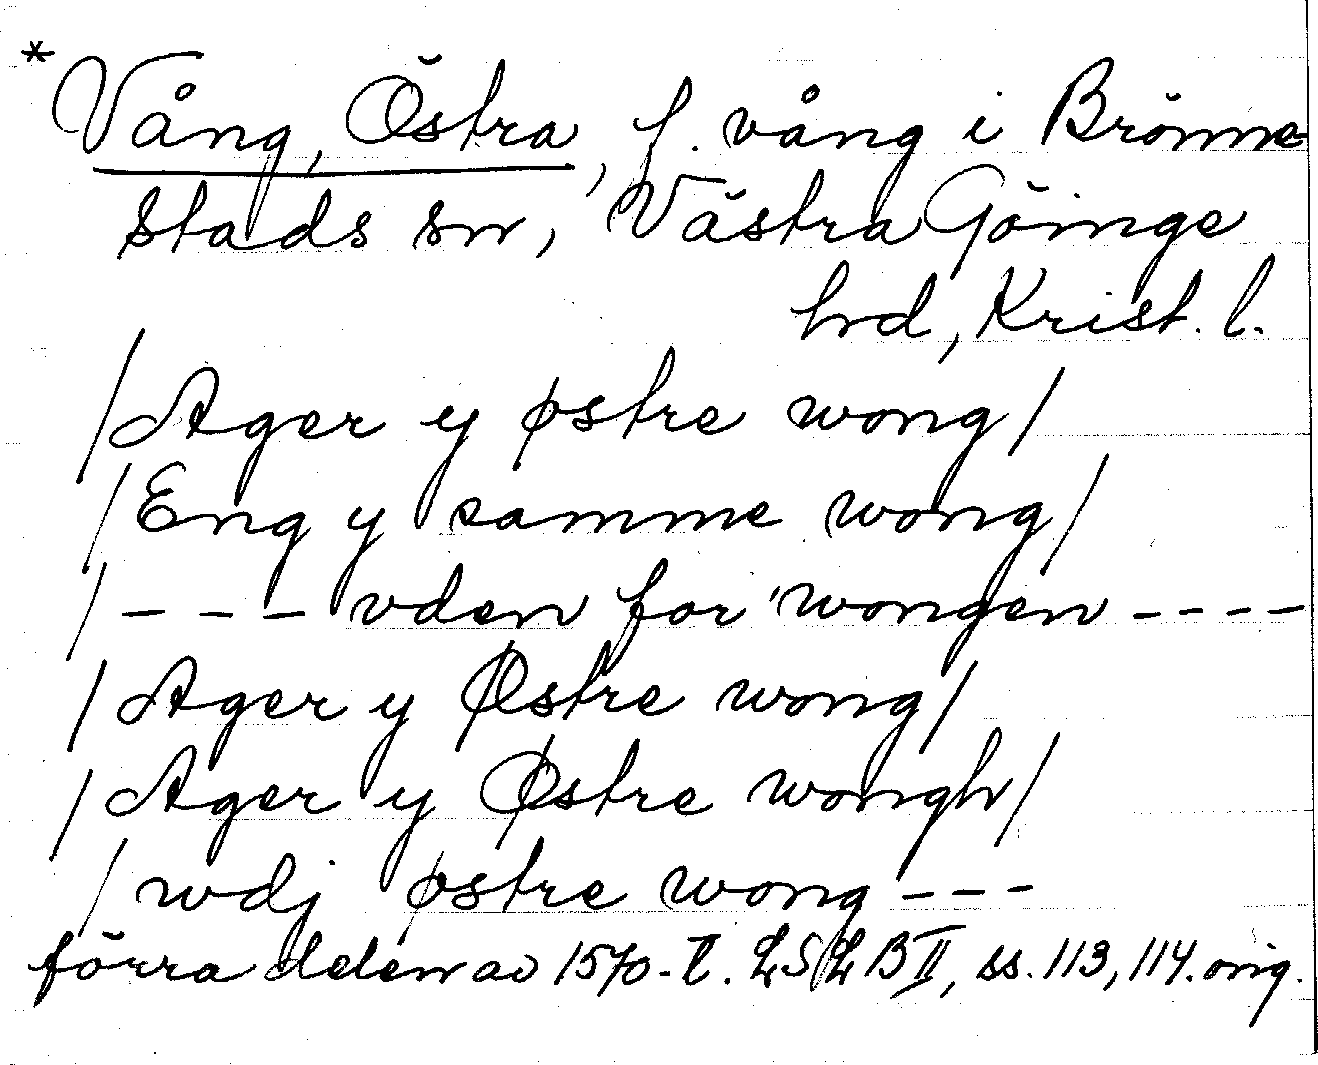 *Vång, Östra, f. vång i Brönne-
stads sn, Västra Göinge
hrd, Krist. l.
/Ager y østre wong/
/Eng y samme wong/
/- - - vden for wongen - - - -
/Ager y Østre wong/
/Ager y Østre wongh/
/wdj østre wong - - -
förra delen av 1570-t. LSLB II, ss. 113, 114. orig.